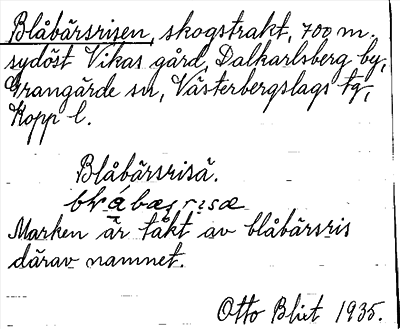 Blåbärsrisen, skogstrakt, 700 m.
sydöst Vikas gård, Dalkarlsberg by,
Grangärde sn, Västerbergslags tg,
Kopp l.
Blåbärsriså.
Marken är täkt av blåbärsris
därav namnet.
Otto Blixt 1935.